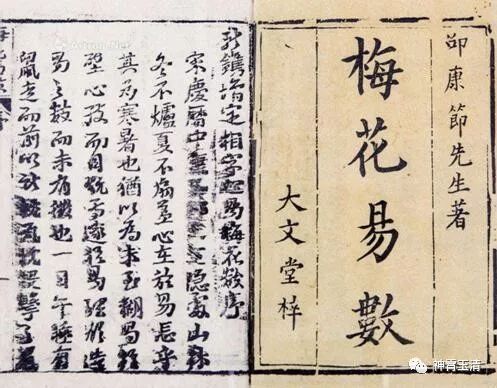 邵康節先生著
梅花易數
大文堂梓
新鐫增定相字心易梅花數序
宋慶曆中隱處山林
冬不爐夏不扇蓋心在於易忘乎
其為寒暑也猶以為未至糊易於
壁心致而目玩焉邃於易理欲造
易之數而未有徵也一日午睡有
鼠走而前以所枕瓦枕投擊
神霄玉清